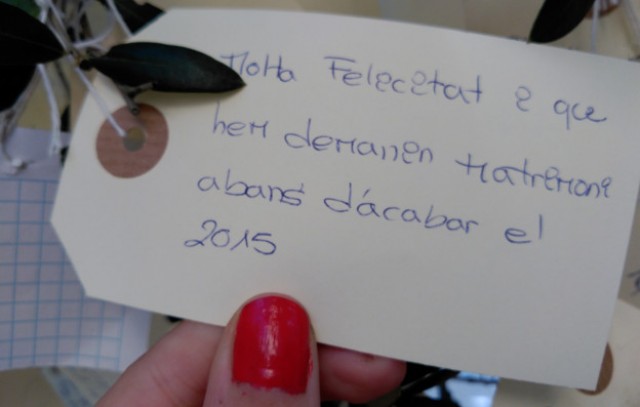 Molta Felicitat i que
hem demanin matrimoni
abans d'acabar el
2015